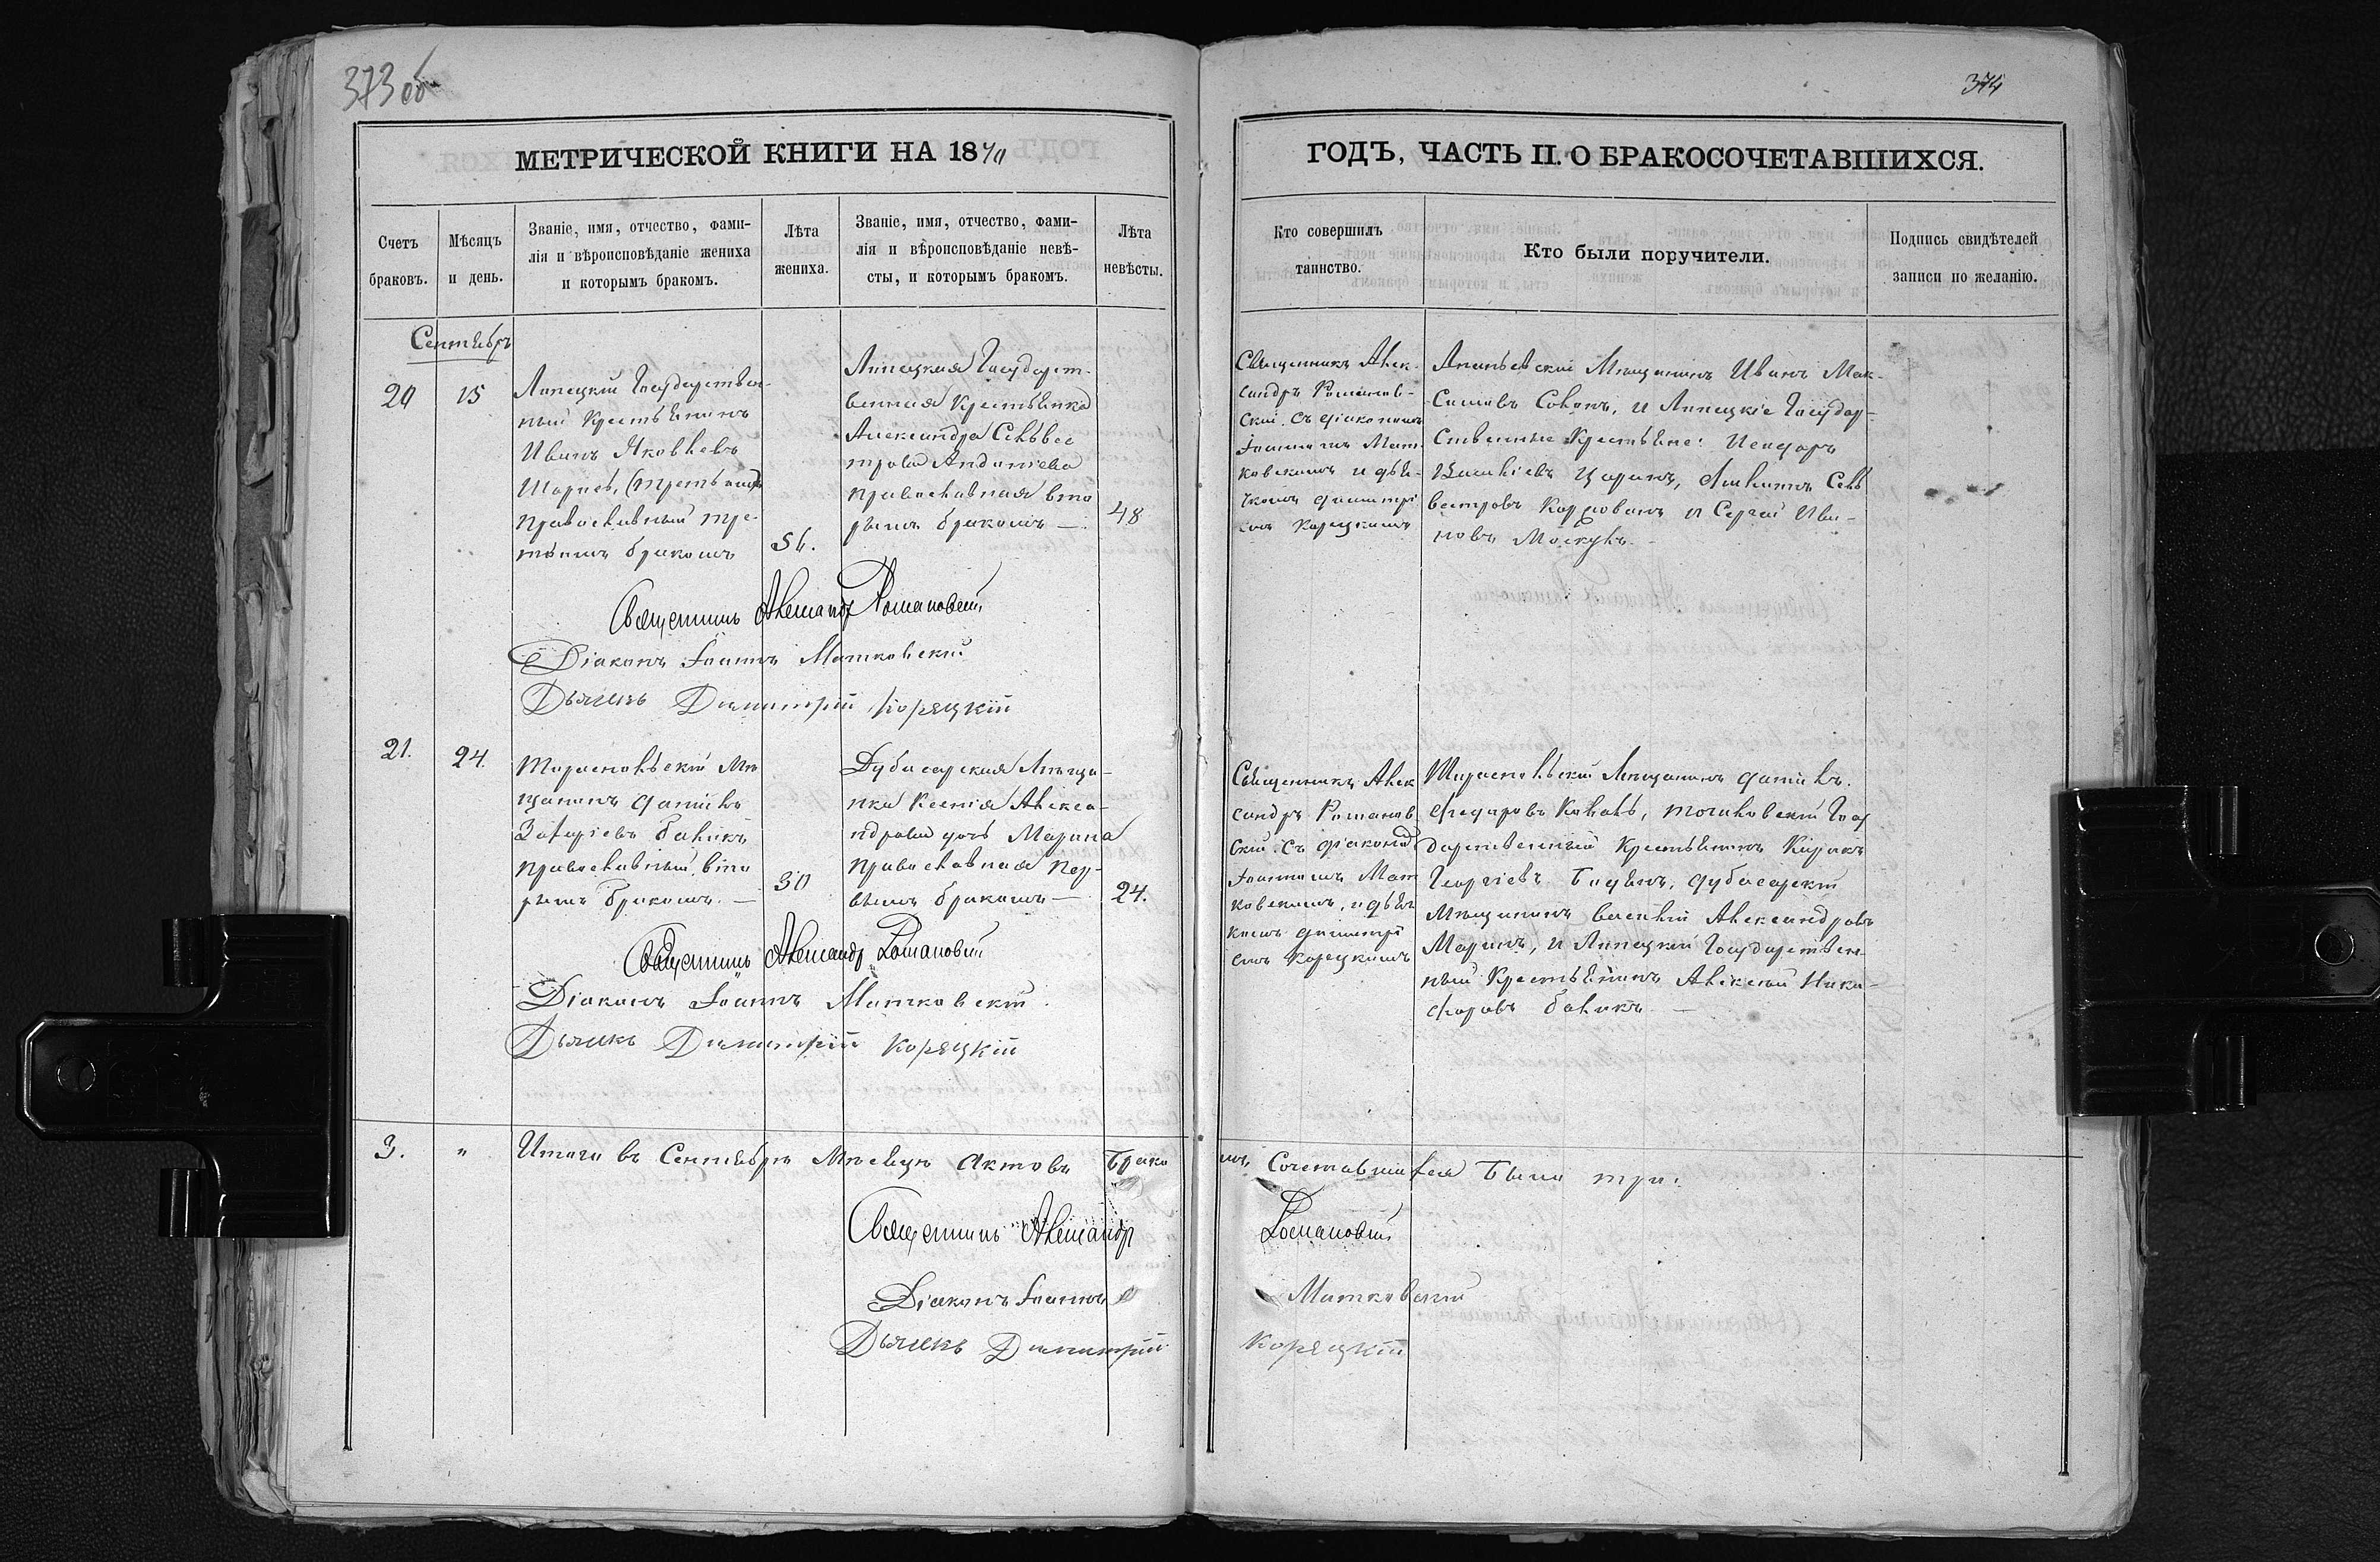 373 об
374
МЕТРИЧЕСКОЙ КНИГИ НА 1870
ГОДЪ, ЧАСТЬ II. О БРАКОСОЧЕТАВШИХСЯ.
Счетъ
браковъ.
Мѣсяцъ
и день.
Званіе, имя, отчество, фами-
лія и вѣроисповѣданіе жениха
и которымъ бракомъ.
Лѣта
жениха.
Званіе, имя, отчество, фами-
лія и вѣроисповѣданіе невѣ-
сты, и которымъ бракомъ.
Лѣта
невѣсты.
Кто совершилъ
таинство.
Кто были поручители.
Подпись свидѣтелей
записи по желанію.
Сентябрь
20
15
Липецкій Государствен-
ный Крестьянинъ
Иванъ Яковлевъ
православный тре-
тьимъ бракомъ
56.
Липецкая Государст-
венная Крестьянка
Александра Сельвес
трова Андоніева
православная вто
рымъ бракомъ —
48
Священникъ Алек-
сандръ Романов-
скій съ діакономъ
Іоанномъ Мат
ковскимъ и дья-
чкомъ Димитрі
емъ Корецкимъ
Ананьевскій Мѣщанинъ Иванъ Мак-
симовъ Соконъ, и Липецкіе Государ-
ственные Крестьяне:
Василіевъ Царанъ, Сель
вестровъ Корловонъ и Сергей Ива-
новъ Москулъ. —
Священникъ Александр Романовскій
Діаконъ Іоаннъ Матковскій
Дьячекъ Димитрій Корецкій
21.
24.
Тираспольскій Мѣ
щанинъ Даніилъ
Захаріевъ Баликъ
православный, вто
рымъ бракомъ. —
30
Дубосарская Мѣща-
нка Ксенія Алекса-
ндрова дочь Марина
православная пер-
вымъ бракомъ —
24.
Священникъ Алек
сандръ Романов
скій съ діакономъ
Іоанномъ Мат
ковскимъ, и дьяч
комъ Димитрі
емъ Корецкимъ
Тираспольскій Мѣщанинъ Даніилъ
Федоровъ Коваль, Точиловскій Госу
дарственный Крестьянинъ Кирилъ
Георгіевъ Боцанъ, Дубосарскій
Мѣщанинъ Василій Александровъ
Маринъ, и Липецкій Государствен-
ный Крестьянинъ Алексѣй Ники-
форовъ Баликъ. —
Священникъ Александр Романовскій
Діаконъ Іоаннъ Матковскій
Дьячекъ Димитрій Корецкій
3. " Итого въ Сентябрѣ Мѣсяцѣ Актовъ Брако
мъ Сочетавшихся было три.
Священникъ Александр Романовскій
Діаконъ Іоаннъ Матковскій
Дьячекъ Димитрій Корецкій